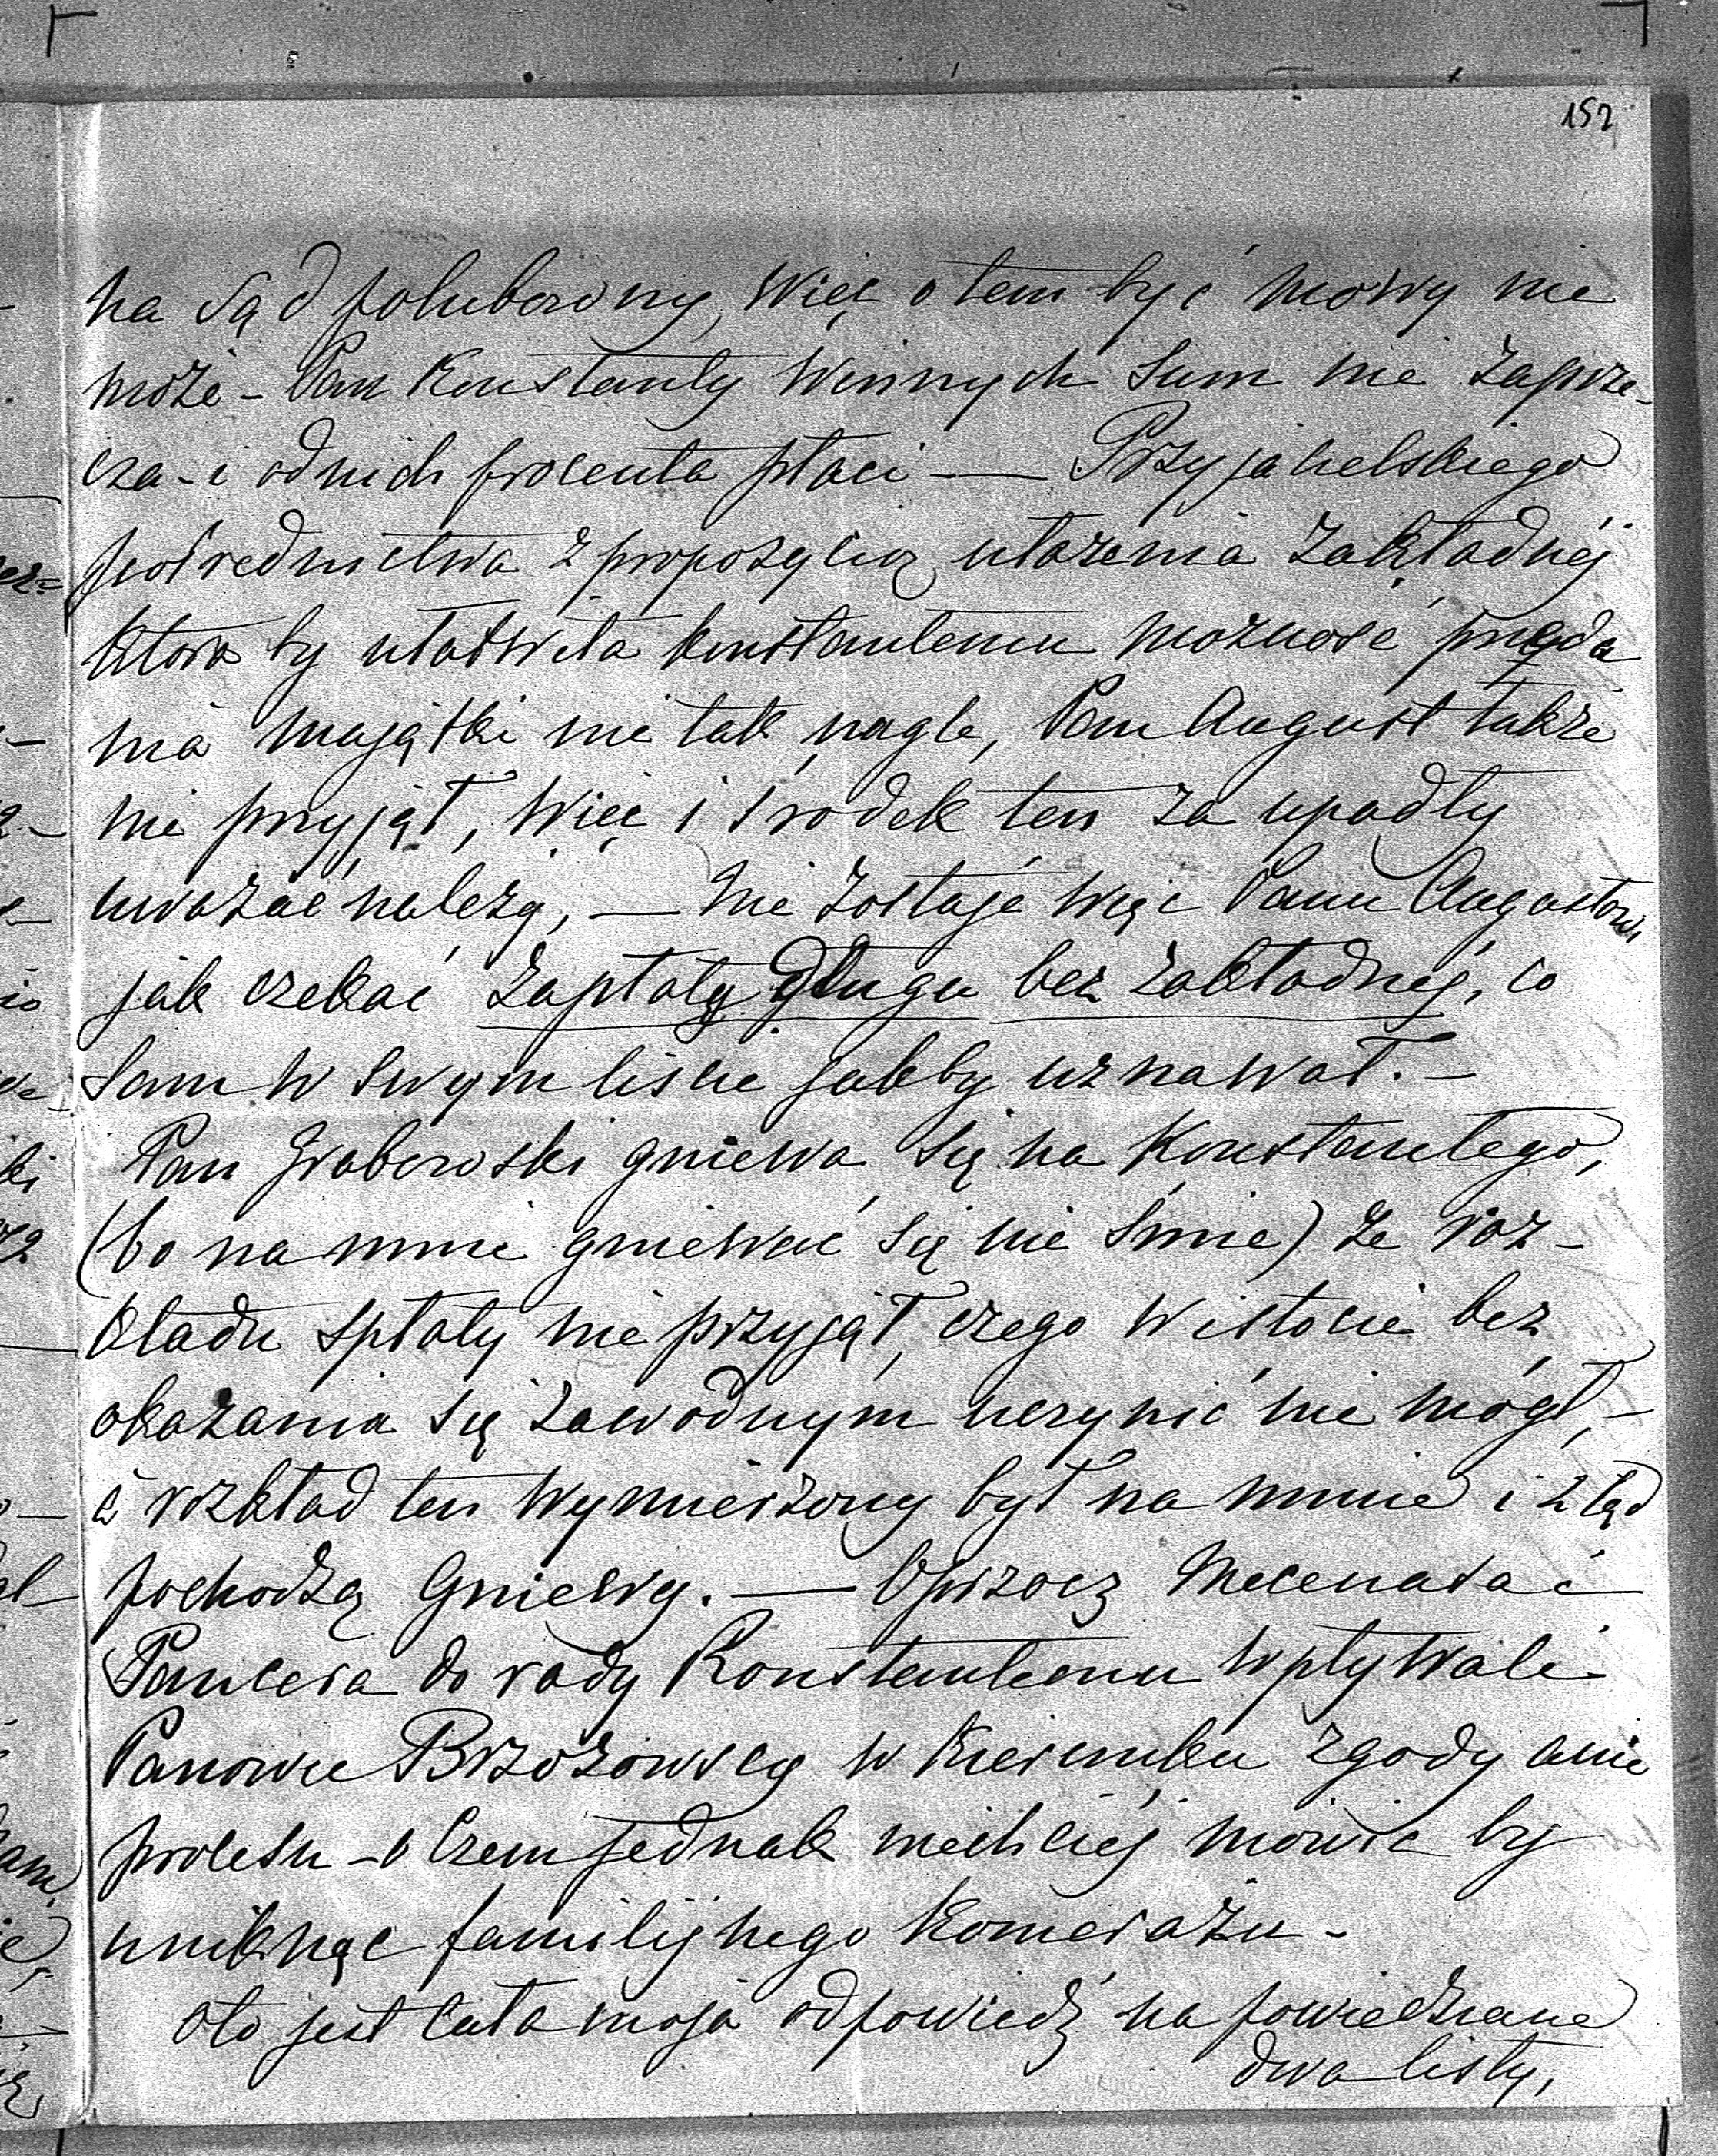 152
na sąd polubowny, więc o tem być mowy nie
może – Pan Konstanty winnych sum nie zaprze-
cza – i od nich procenta płaci — Przyjacielskiego
pośrednictwa z propozycią ułożenia zakładnéj
która by ułatwiła Konstantemu możność przeda
nia majątki nie tak nagle, Pan August także
nie przyjął, więc i środek ten za upadły
uważać należy, — nie zostaje więc Panu Augustowi
jak czekać zapłaty długu bez zakładnéj, co
sam w swym liście jakby uznawał. –
Pan Grabowski gniewa się na Konstantego,
(bo na mnie gniewać się nie śmie) że roz-
kładu spłaty nie przyjął, czego w istocie bez
okazania się zawodnym uczynić nie mógł, –
a rozkład ten wymierzony był na mnie i ztąd
pochodzą gniewy. — Oprócz Mecenasa i
Pancera do rady Konstantemu wpływali
Panowie Brzozowscy w kierunku zgody a nie
procesu – o czem jednak niechciéj mówić by
uniknąć familijnego komerażu –
oto jest cała moja odpowiedź na powiedziane
dwa listy,